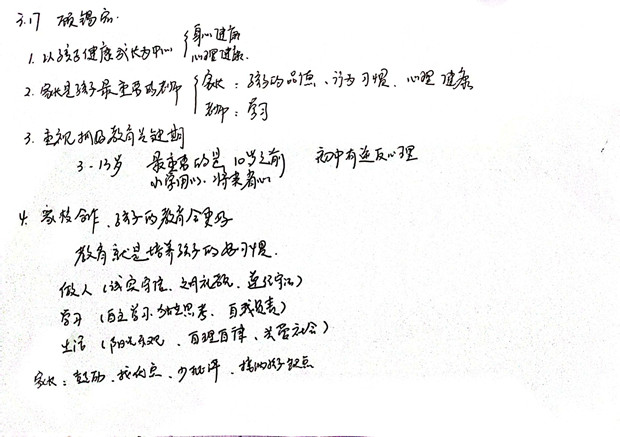 3.17 顾锡宏
1. 以孩子健康成长为中心 { 身心健康
心理健康
2. 家长是孩子最重要的老师 { 家长：孩子的品德、行为习惯、心理健康
老师：学习
3. 重视抓好教育关键期
3-13岁 最重要的是10岁之前 初中有逆反心理
小学用心，将来省心
4. 家校合作，孩子的教育会更好
教育就是培养孩子的好习惯.
做人（诚实守信、文明礼貌、遵纪守法）
学习（自主学习、独立思考、自我负责）
生活（阳光乐观、自理自律、关爱社会）
家长：鼓励、找优点、少批评、接纳孩子缺点